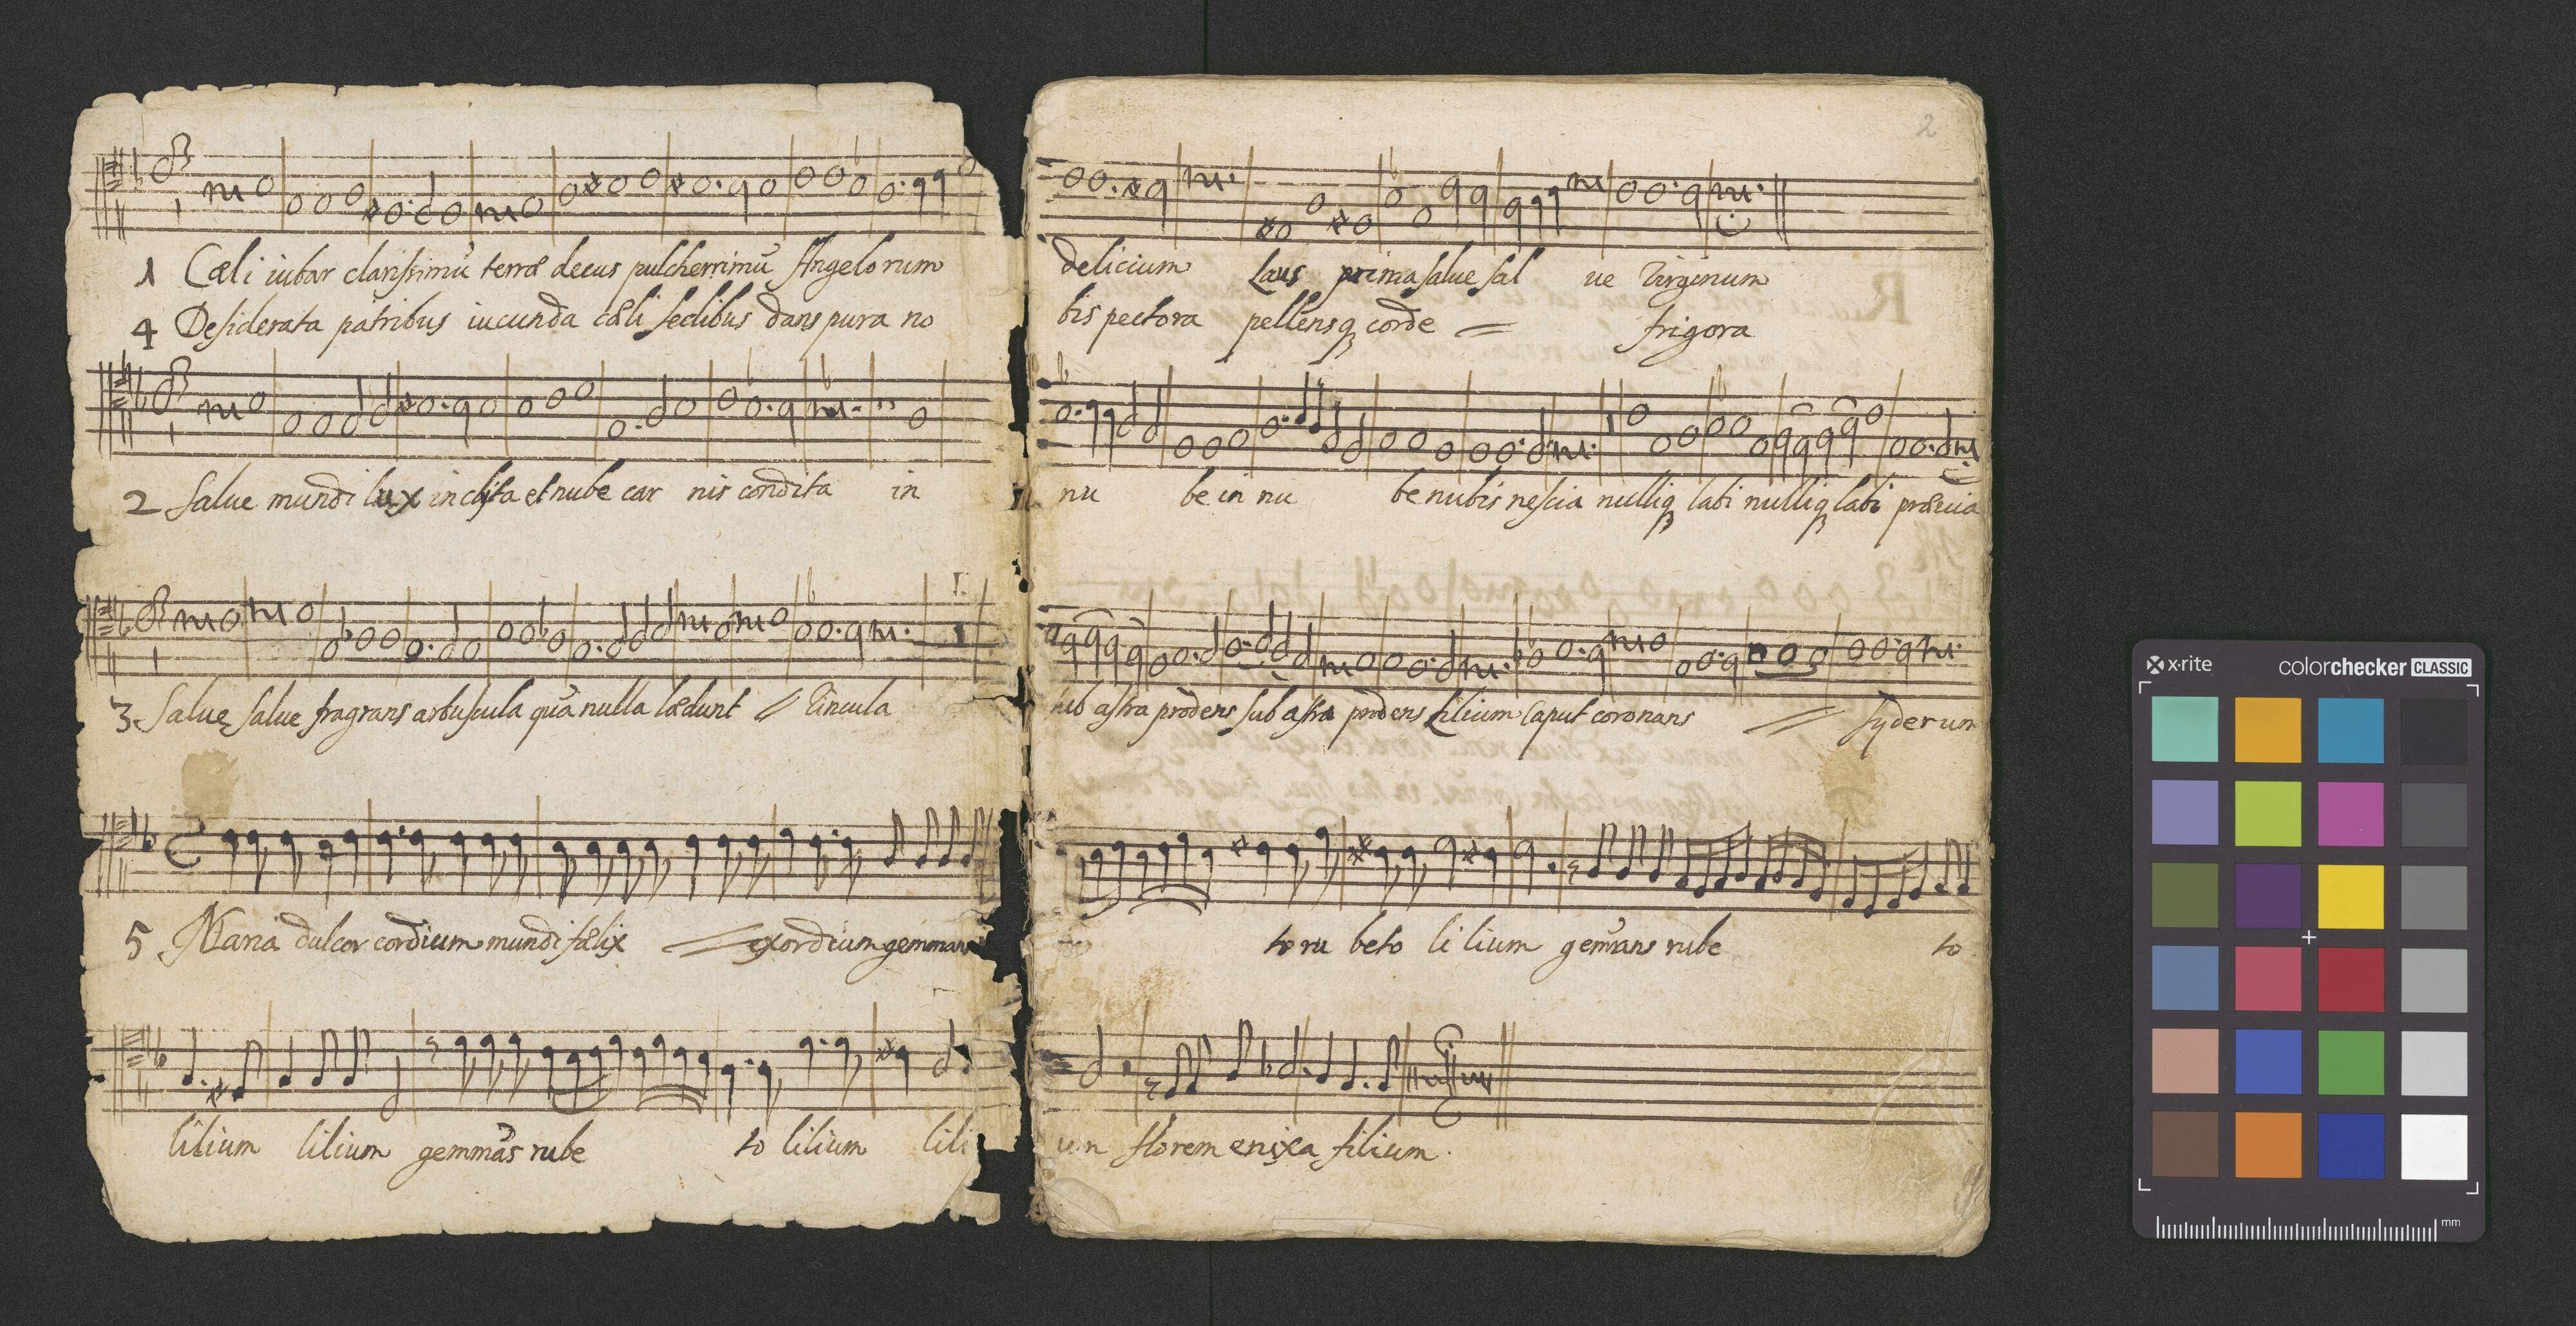 2
1 Cæli iubar clarissimū terræ decus pulcherrimū Angelorum
delicium Laus prima salue sal ue Virginum
4 Desiderata patribus iucunda cæli sedibus dans pura no
bis pectora pellensq corde = frigora
2 Salue mundi lux inclita et nube car nis condita in
nu be in nu be nubis nescia nulliq labi nulliq labi præuia
3 Salue salue fragrans arbuscula quā nulla lædunt // Vincula
sub astra prodens sub astra prodens filium Caput coronans // syderum
5 Maria dulcor cordium mundi fælix = exordium gemmans
to ru beto li lium gem̄ans rube to
lilium lilium gemmās rube to lilium lili
um florem enixa filium.
x-rite
colorchecker CLASSIC
mm